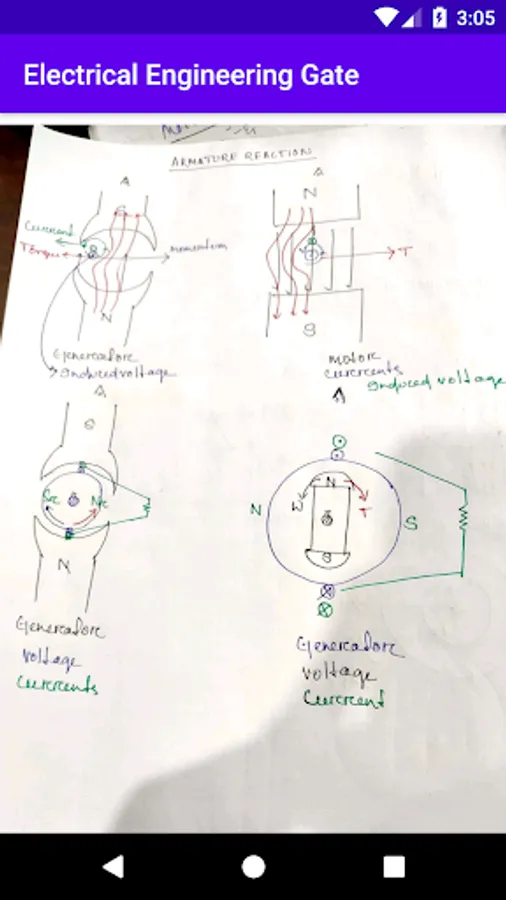 3:05
Electrical Engineering Gate
ARMATURE REACTION
A
S
Current
Torque
momentum
N
Genercadorc
Induced voltage
A
N
T
S
motorc
currcents
Induced voltage
A
S
N
Genercadorc
voltage
Currcents
N
N
W
T
S
S
Genercadorc
voltage
Current